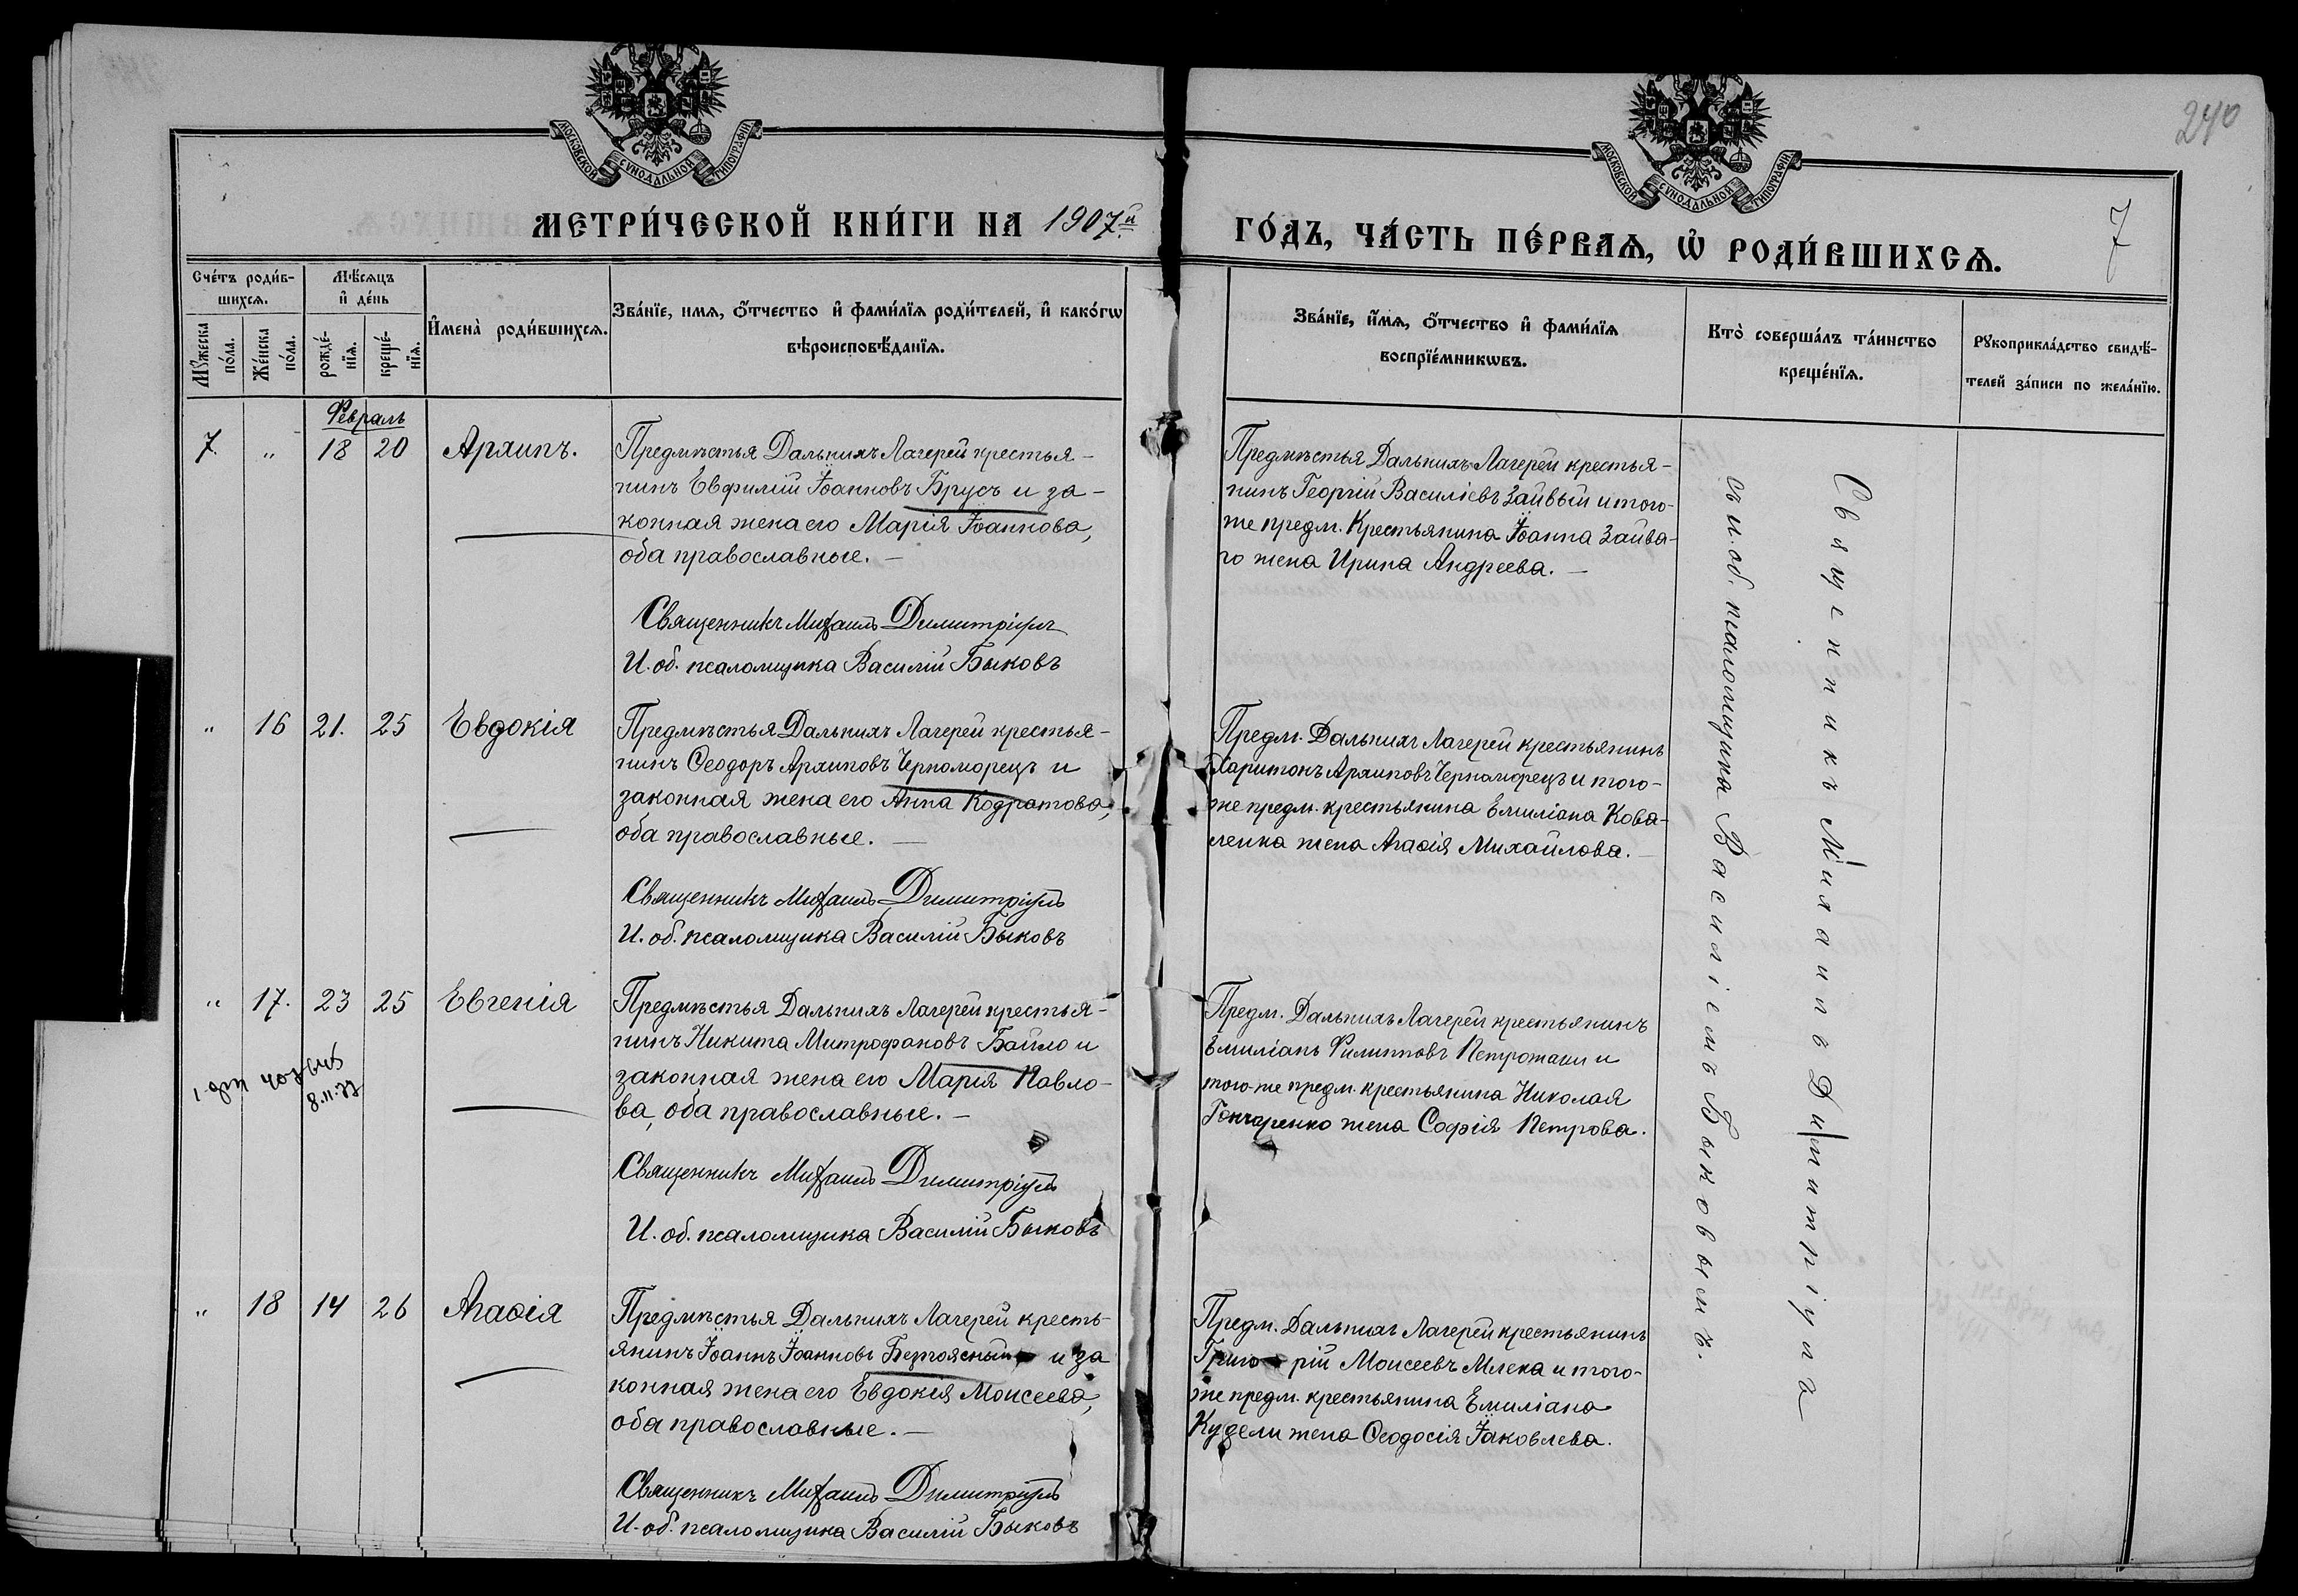 240
7
МОСКОВСКОЙ СѴНОДАЛЬНОЙ ТИПОГРАФІИ
МОСКОВСКОЙ СѴНОДАЛЬНОЙ ТИПОГРАФІИ
МЕТРИ́ЧЕСКОЙ КНИ́ГИ НА 1907й
ГО́ДЪ, ЧА́СТЬ ПЕ́РВАѦ, Ѡ҆ РОДИ́ВШИХСѦ.
Сче́тъ роди́в-
шихсѧ.
Мꙋ́жеска по́ла.
Же́нска по́ла.
Мѣ́сѧцъ
и҆ де́нь
рожде́-
нїѧ.
креще́-
нїѧ.
И҆мена̀ роди́вшихсѧ.
Зва́нїе, имѧ, ѻ҆́тчество и҆ фами́лїѧ роди́телей, и҆ како́гѡ
вѣроисповѣ́данїѧ.
Зва́нїе, и҆́мѧ, ѻ҆́тчество и҆ фами́лїѧ
воспрїе́мникѡвъ.
Кто̀ соверша́лъ та́инство
креще́нїѧ.
Рꙋкоприкла́дство свидѣ́-
телей за́писи по жела́нїю.
Февраль
7. " 18 20 Архипъ.
Предмѣстья Дальнихъ Лагерей крестья-
нинъ Евфимій Іоанновъ Брусъ и за-
конная жена его Марія Іоаннова,
оба православные.—
Священникъ Михаилъ Димитріулъ
И. об. псаломщика Василій Быковъ
Предмѣстья Дальнихъ Лагерей крестья-
нинъ Георгій Василіевъ Зайвый и того-
же предм. Крестьянина Іоанна Зайва-
го жена Ирина Андреева.—
" 16 21. 25 Евдокія
Предмѣстья Дальнихъ Лагерей крестья-
нинъ Ѳеодоръ Архиповъ Черноморецъ и
законная жена его Анна Кодратова,
оба православные.—
Священникъ Михаилъ Димитріулъ
И. об. псаломщика Василій Быковъ
Предм. Дальнихъ Лагерей крестьянинъ
Харитонъ Архиповъ Черноморецъ и того-
же предм. крестьянина Емиліана Кова-
ленка жена Агаѳія Михайлова.—
" 17. 23 25 Евгенія
Предмѣстья Дальнихъ Лагерей крестья-
нинъ Никита Митрофановъ Байло и
законная жена его Марія Павло-
ва, оба православные.—
Священникъ Михаилъ Димитріулъ
И. об. псаломщика Василій Быковъ
Предм. Дальнихъ Лагерей крестьянинъ
Емиліанъ Филипповъ Петропаки и
того-же предм. крестьянина Николая
Гончаренко жена Софія Петрова.
" 18 14 26 Агаѳія
Предмѣстья Дальнихъ Лагерей кресть-
янинъ Іоаннъ Іоанновъ Безпоясный и за
конная жена его Евдокія Моисеева,
оба православные.—
Священникъ Михаилъ Димитріулъ
И. об. псаломщика Василій Быковъ
Предм. Дальнихъ Лагерей крестьянинъ
Григорій Моисеевъ Млека и того-
же предм. крестьянина Емиліана
Кудели жена Ѳеодосія Іаковлева.
Священникъ Михаилъ Димитріулъ
съ и. об. псаломщика Василіемъ Быковымъ.